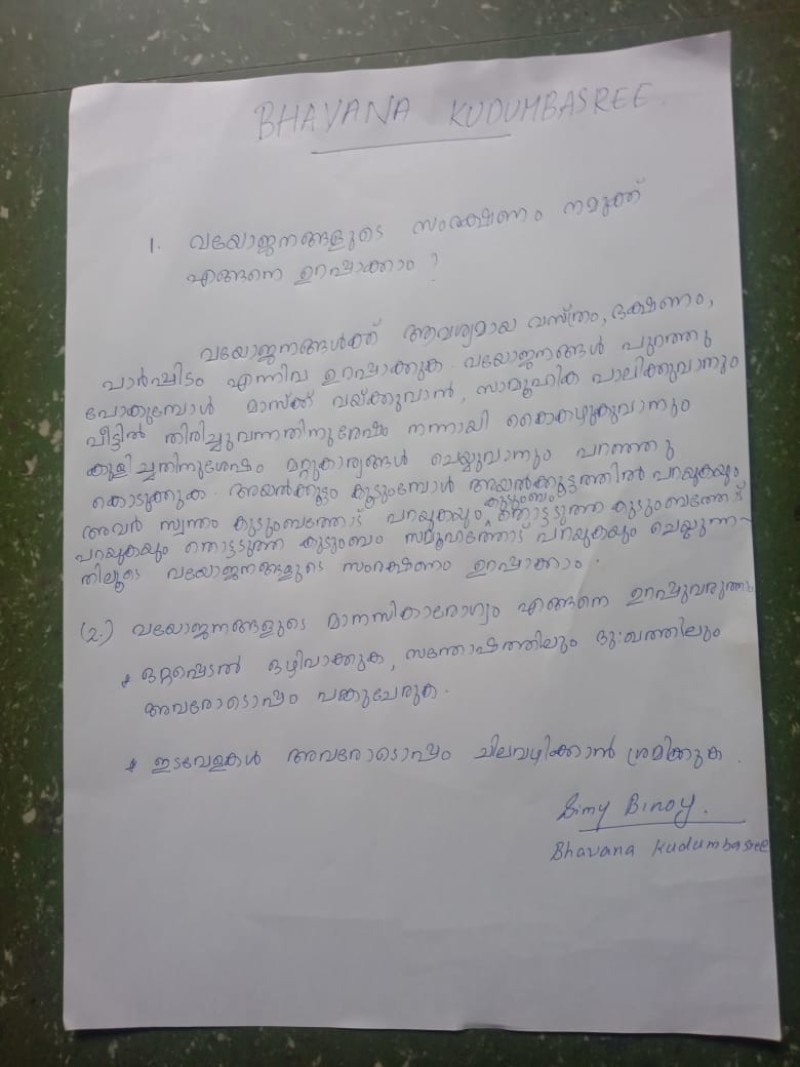 BHAVANA KUDUMBASREE
1. വയോജനങ്ങളുടെ സംരക്ഷണം നമുക്ക്
എങ്ങനെ ഉറപ്പാക്കാം ?
വയോജനങ്ങൾക്ക് ആവശ്യമായ വസ്ത്രം, ഭക്ഷണം,
പാർപ്പിടം എന്നിവ ഉറപ്പാക്കുക. വയോജനങ്ങൾ പുറത്തു
പോകുമ്പോൾ മാസ്ക് വയ്ക്കുവാൻ, സാമൂഹിക പാലിക്കുവാനും
വീട്ടിൽ തിരിച്ചുവന്നതിനുശേഷം നന്നായി കൈകഴുകുവാനും
കുളിച്ചതിനുശേഷം മറ്റുകാര്യങ്ങൾ ചെയ്യുവാനും പറഞ്ഞു
കൊടുക്കുക. അയൽക്കൂട്ടം കൂടുമ്പോൾ അയൽക്കൂട്ടത്തിൽ പറയുകയും
അവർ സ്വന്തം കുടുംബത്തോട് പറയുകയും, കുടുംബം തൊട്ടടുത്ത കുടുംബത്തോട്
പറയുകയും തൊട്ടടുത്ത കുടുംബം സമൂഹത്തോട് പറയുകയും ചെയ്യുന്ന-
തിലൂടെ വയോജനങ്ങളുടെ സംരക്ഷണം ഉറപ്പാക്കാം.
(2.) വയോജനങ്ങളുടെ മാനസികാരോഗ്യം എങ്ങനെ ഉറപ്പുവരുത്താം
* ഒറ്റപ്പെടൽ ഒഴിവാക്കുക, സന്തോഷത്തിലും ദു:ഖത്തിലും
അവരോടൊപ്പം പങ്കുചേരുക.
* ഇടവേളകൾ അവരോടൊപ്പം ചിലവഴിക്കാൻ ശ്രമിക്കുക.
Simy Binoy.
Bhavana Kudumbasree